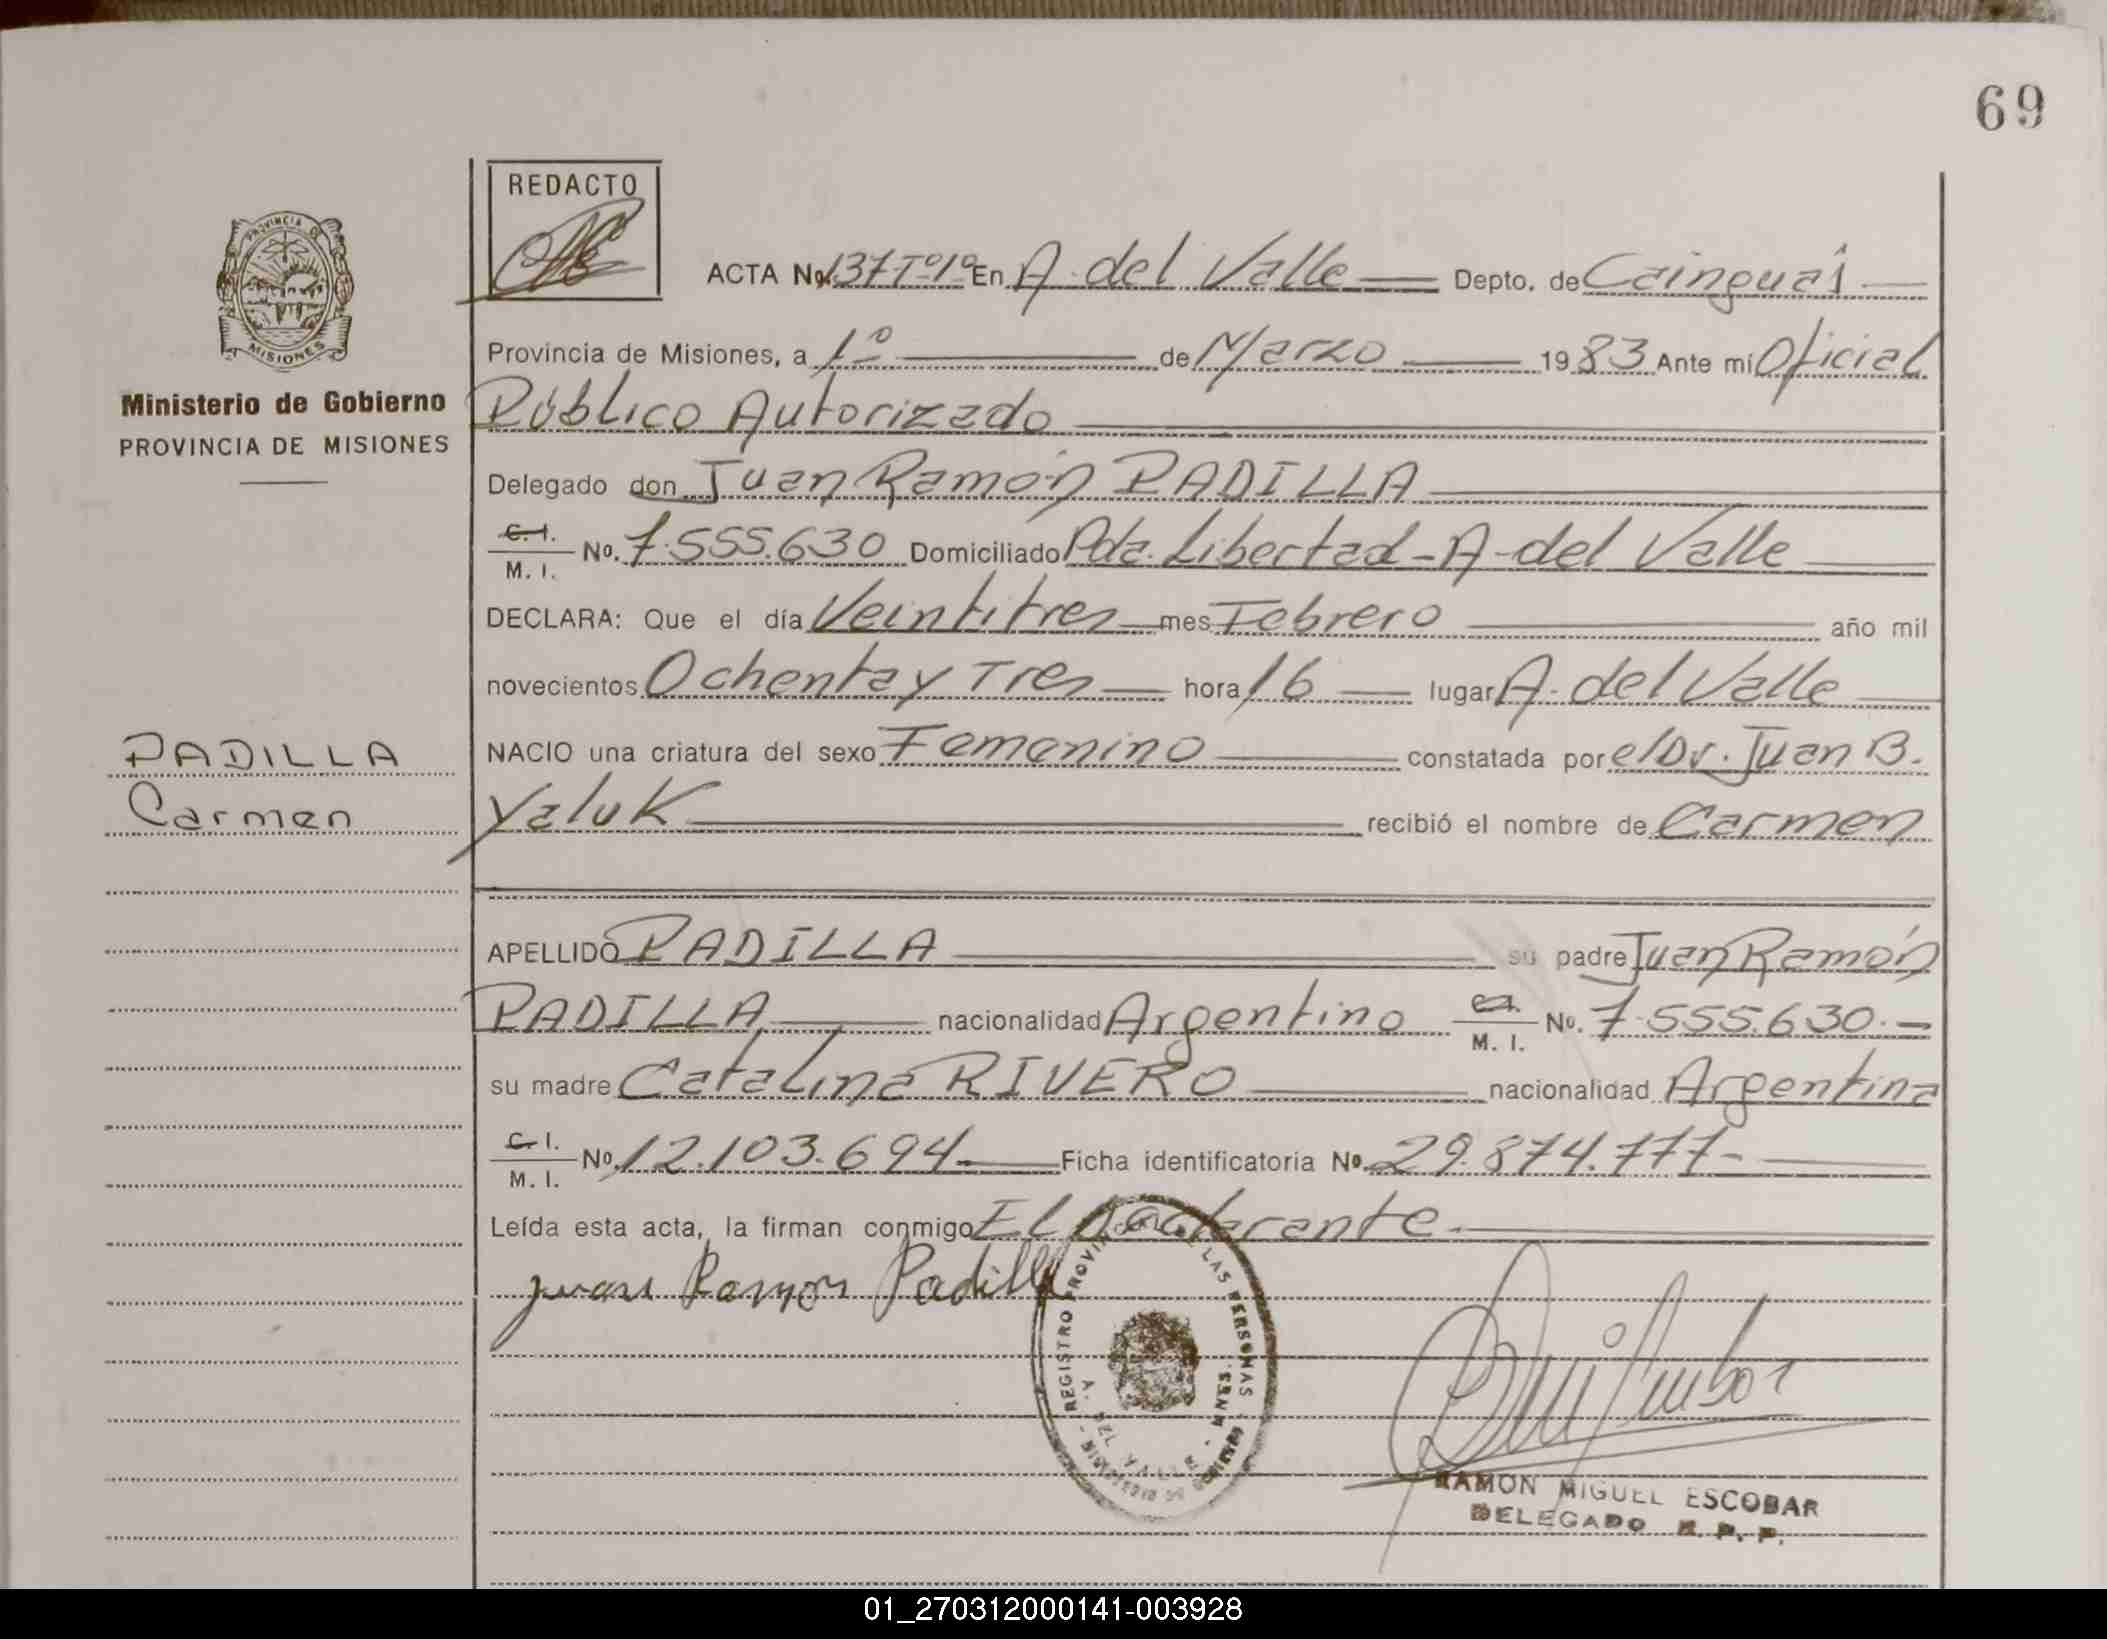 69
REDACTO
PROVINCIA D
MISIONES
Ministerio de Gobierno
PROVINCIA DE MISIONES
ACTA No. 137 Tº1º En A. del Valle Depto. de Cainguás
Provincia de Misiones, a 1º de Marzo 1983 Ante mí Oficial
Público Autorizado
Delegado don Juan Ramón PADILLA
C. I. / M. I. No. 7.555.630 Domiciliado Pda. Libertad - A - del Valle
DECLARA: Que el día Veintitres mes Febrero año mil
novecientos Ochenta y Tres hora 16 lugar A. del Valle
NACIO una criatura del sexo Femenino constatada por el Dr. Juan B.
Yaluk recibió el nombre de Carmen
PADILLA
Carmen
APELLIDO PADILLA su padre Juan Ramón
PADILLA nacionalidad Argentino C.I. / M. I. No. 7.555.630.-
su madre Catalina RIVERO nacionalidad Argentina
C. I. / M. I. No. 12.103.694.- Ficha identificatoria No. 29.874.777-
Leída esta acta, la firman conmigo El declarante.
Juan Ramon Padilla
REGISTRO PROVINCIAL DE LAS PERSONAS
A. DEL VALLE - MNES.
RAMON MIGUEL ESCOBAR
DELEGADO R. P. P.
01_270312000141-003928